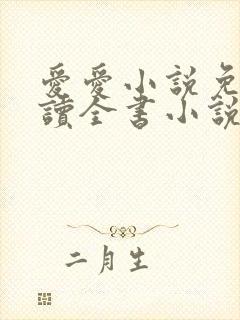 愛愛小説免
讀全書小說
二月生